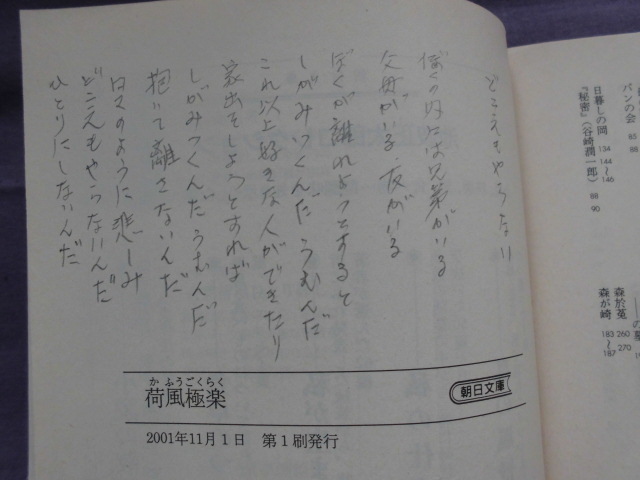 どこえもやらない
ぼくの内には兄弟がいる
父母がいる 友がいる
ぼくが離れようとすると
しがみつくんだ うむんだ
これ以上好きな人ができたり
家出をしようとすれば
しがみつくんだうむんだ
抱いて離さないんだ
のように悲しみ
どこえもやらないんだ
ひとりにしないんだ
かふうごくらく
荷風極楽
朝日文庫
2001年11月1日 第1刷発行
パンの会 85 88
日暮しの岡 134 144〜146
『秘密』(谷崎潤一郎) 88 90
森於菟 260 270
森が崎 183〜187